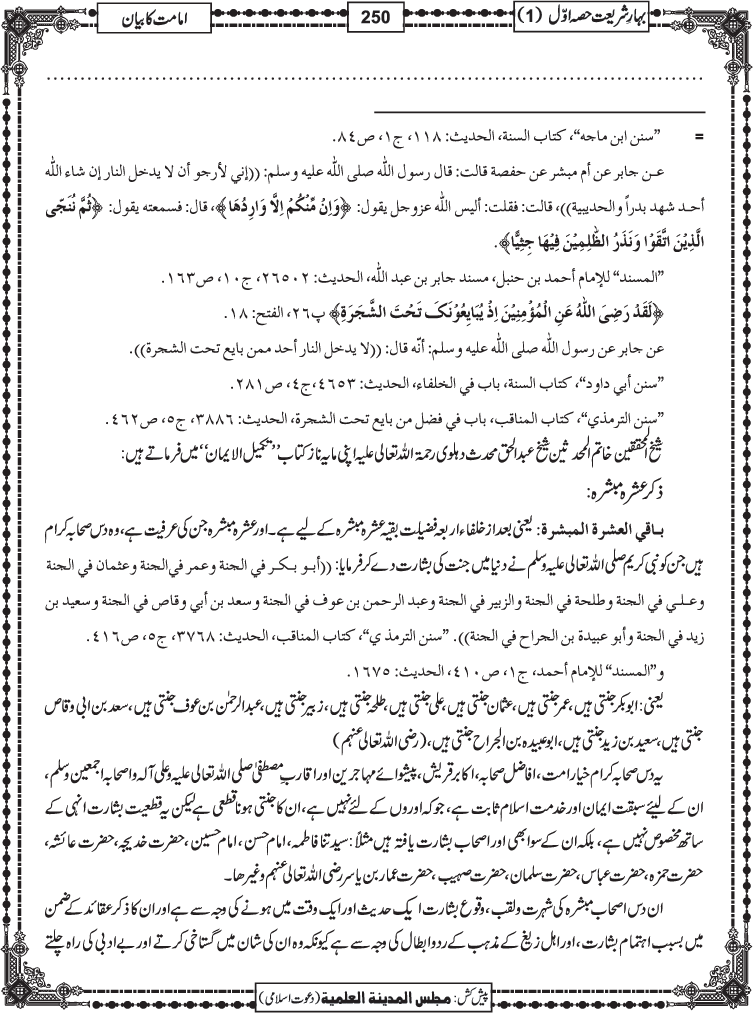 بہارِ شریعت حصہ اوّل (1)
250
امامت کا بیان
= ”سنن ابن ماجه“، كتاب السنة، الحديث: ١١٨، ج١، ص٨٤.
عـن جابر عن أم مبشر عن حفصة قالت: قال رسول الله صلى الله عليه وسلم: ((إني لأرجو أن لا يدخل النار إن شاء الله
أحـد شهد بدراً والحديبية))، قالت: فقلت: أليس الله عزوجل يقول: ﴿وَاِنْ مِّنْكُمْ اِلَّا وَارِدُهَا﴾، قال: فسمعته يقول: ﴿ثُمَّ نُنَجِّى
الَّذِيْنَ اتَّقَوْا وَنَذَرُ الظّٰلِمِيْنَ فِيْهَا جِثِيًّا﴾.
”المسند“ للإمام أحمد بن حنبل، مسند جابر بن عبد الله، الحديث: ٢٦٥٠٢، ج١٠، ص١٦٣.
﴿لَقَدْ رَضِىَ اللّٰهُ عَنِ الْمُؤْمِنِيْنَ اِذْ يُبَايِعُوْنَكَ تَحْتَ الشَّجَرَةِ﴾ پ٢٦، الفتح: ١٨.
عن جابر عن رسول الله صلى الله عليه وسلم: أنّه قال: ((لا يدخل النار أحد ممن بايع تحت الشجرة)).
”سنن أبي داود“، كتاب السنة، باب في الخلفاء، الحديث: ٤٦٥٣، ج٤، ص٢٨١.
”سنن الترمذي“، كتاب المناقب، باب في فضل من بايع تحت الشجرة، الحديث: ٣٨٨٦، ج٥، ص٤٦٢.
شیخ المحققین خاتم المحدثین شیخ عبدالحق محدث دہلوی رحمۃ اللہ تعالی علیہ اپنی مایہ ناز کتاب ’’تکمیل الایمان‘‘ میں فرماتے ہیں:
ذکر عشرہ مبشرہ:
بـاقي العشرة المبشرة: یعنی بعد از خلفاء اربعہ فضیلت بقیہ عشرہ مبشرہ کے لیے ہے۔ اور عشرہ مبشرہ جن کی عرفیت ہے، وہ دس صحابہ کرام
ہیں جن کو نبی کریم صلی اللہ تعالی علیہ وسلم نے دنیا میں جنت کی بشارت دے کر فرمایا: ((أبـو بـكـر في الجنة وعمر في الجنة وعثمان في الجنة
وعـلـي في الجنة وطلحة في الجنة والزبير في الجنة وعبد الرحمن بن عوف في الجنة وسعد بن أبي وقاص في الجنة وسعيد بن
زيد في الجنة وأبو عبيدة بن الجراح في الجنة)). ”سنن الترمذي“، كتاب المناقب، الحديث: ٣٧٦٨، ج٥، ص٤١٦.
و”المسند“ للإمام أحمد، ج١، ص٤١٠، الحديث: ١٦٧٥.
یعنی: ابوبکر جنتی ہیں، عمر جنتی ہیں، عثمان جنتی ہیں، علی جنتی ہیں، طلحہ جنتی ہیں، زبیر جنتی ہیں، عبدالرحمٰن بن عوف جنتی ہیں، سعد بن ابی وقاص
جنتی ہیں، سعید بن زید جنتی ہیں، ابوعبیدہ بن الجراح جنتی ہیں، (رضی اللہ تعالی عنہم)
یہ دس صحابہ کرام خیار امت، افاضل صحابہ، اکابر قریش، پیشوائے مہاجرین اور اقاربِ مصطفیٰ صلی اللہ تعالی علیہ وعلی آلہ واصحابہ اجمعین وسلم،
ان کے لیئے سبقت ایمان اور خدمت اسلام ثابت ہے، جو کہ اوروں کے لئے نہیں ہے، ان کا جنتی ہونا قطعی ہے لیکن یہ قطعیت بشارت انہی کے
ساتھ مخصوص نہیں ہے، بلکہ ان کے سوا بھی اور اصحاب بشارت یافتہ ہیں مثلاً: سیدتنا فاطمہ، امام حسن، امام حسین، حضرت خدیجہ، حضرت عائشہ،
حضرت حمزہ، حضرت عباس، حضرت سلمان، حضرت صہیب، حضرت عمار بن یاسر رضی اللہ تعالی عنہم وغیرھا۔
ان دس اصحاب مبشرہ کی شہرت ولقب، وقوع بشارت ایک حدیث اور ایک وقت میں ہونے کی وجہ سے ہے اور ان کا ذکر عقائد کے ضمن
میں بسبب اہتمام بشارت، اور اہل زیغ کے مذہب کے رد وابطال کی وجہ سے ہے کیونکہ وہ ان کی شان میں گستاخی کرتے اور بے ادبی کی راہ چلتے
پیش کش: مجلس المدينة العلمية (دعوت اسلامی)